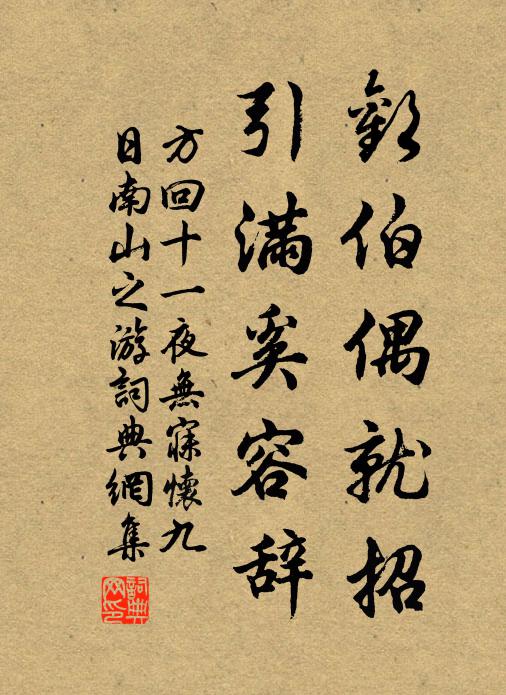 歡伯偶就招
引滿奚容辞
方回十一夜無寐懷九
日南山之游詞典網集
詞典
网印